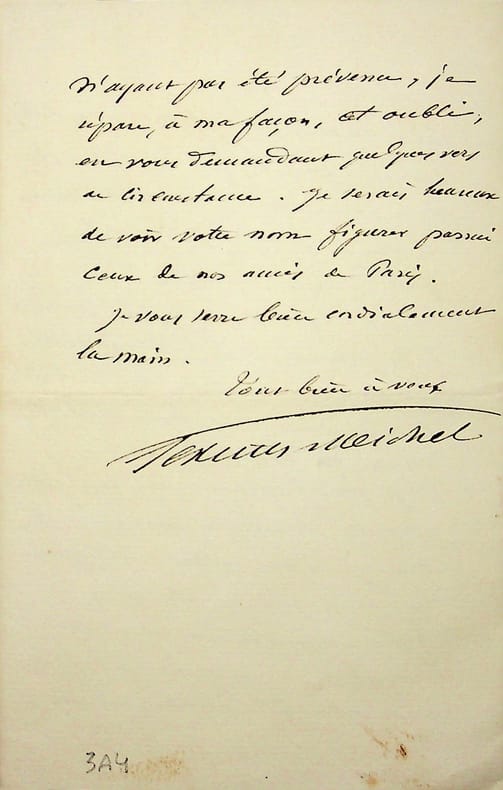 n'ayant pas été prévenu, je
répare, à ma façon, cet oubli,
en vous demandant quelques vers
de circonstance. Je serais heureux
de voir votre nom figurer parmi
ceux de nos amis de Paris.
Je vous serre bien cordialement
la main.
Tout bien à vous
Michel
3A4